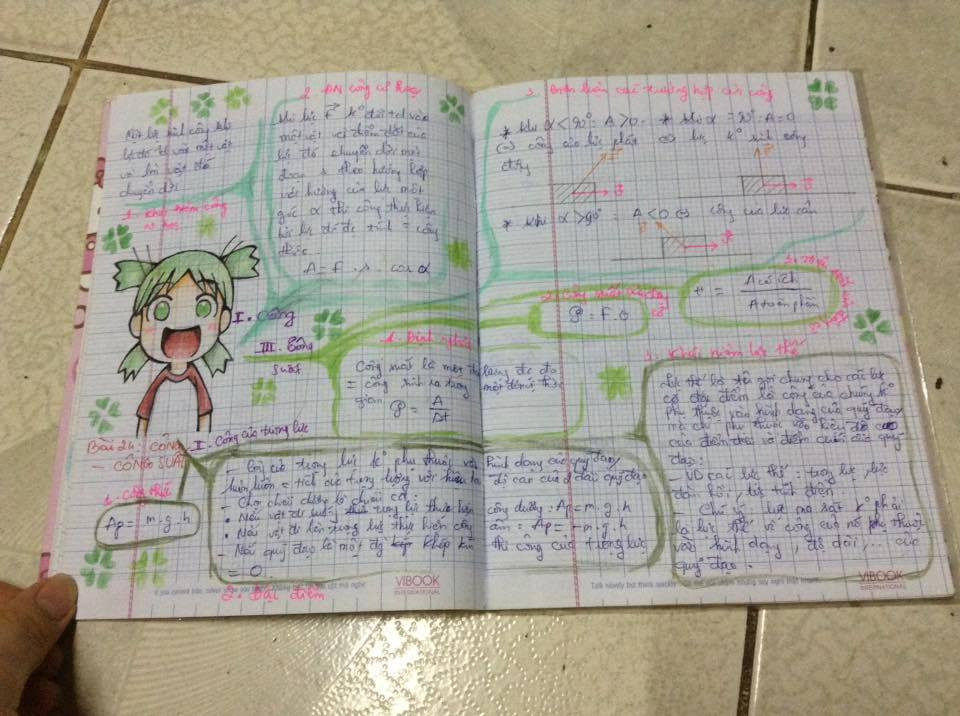 Một lực sinh công khi
lực đó td vào một vật
và làm vật đó
chuyển dời
1. Khái niệm công
cơ học
2. ĐN công cơ học
Khi lực F k° đổi td vào
một vật và điểm đặt của
lực đó chuyển dời một
đoạn s theo hướng hợp
với hướng của lực một
góc α thì công thực hiện
bởi lực đó đc tính = công
thức
A = F . s . cos α
3. Biện luận các trường hợp của công
* khi α < 90° A > 0
(=) công của lực phát
động
* khi α = 90° A = 0
(=) lực k° sinh công
* khi α > 90° : A < 0 (=) công của lực cản
I. Công
III. Công
suất
1. Định nghĩa
Công suất là một đại lượng đc đo
= công sinh ra trong một đơn vị thời
gian
P = A / Δt
P = F . v
H = A có ích / A toàn phần
3. Khái niệm lực thế
Lực thế là tên gọi chung cho các lực
có đặc điểm là công của chúng k°
phụ thuộc vào hình dạng của quỹ đạo
mà chỉ phụ thuộc vào hiệu độ cao
của điểm đầu và điểm cuối của quỹ
đạo:
- VD các lực thế : trọng lực, lực
đàn hồi, lực tĩnh điện
- Chú ý lực ma sát k° phải
là lực thế vì công của nó phụ thuộc
vào hình dạng, độ dài, ... của
quỹ đạo.
Bài 24: CÔNG
- CÔNG SUẤT
II. Công của trọng lực
1. Công thức
Ap = m.g.h
- Công của trọng lực k° phụ thuộc vào hình dạng của quỹ đạo
luôn luôn = tích của trọng lượng với hiệu độ cao của 2 đầu quỹ đạo
- Chọn chiều dương là chiều
• Nếu vật đi xuống thì trọng lực thực hiện công dương : Ap = m.g.h
• Nếu vật đi lên trọng lực thực hiện công âm : Ap = - m.g.h
- Nếu quỹ đạo là một đg khép kín thì công của trọng lực
= 0
2. Đặc điểm
VIBOOK
INTERNATIONAL
VIBOOK
INTERNATIONAL